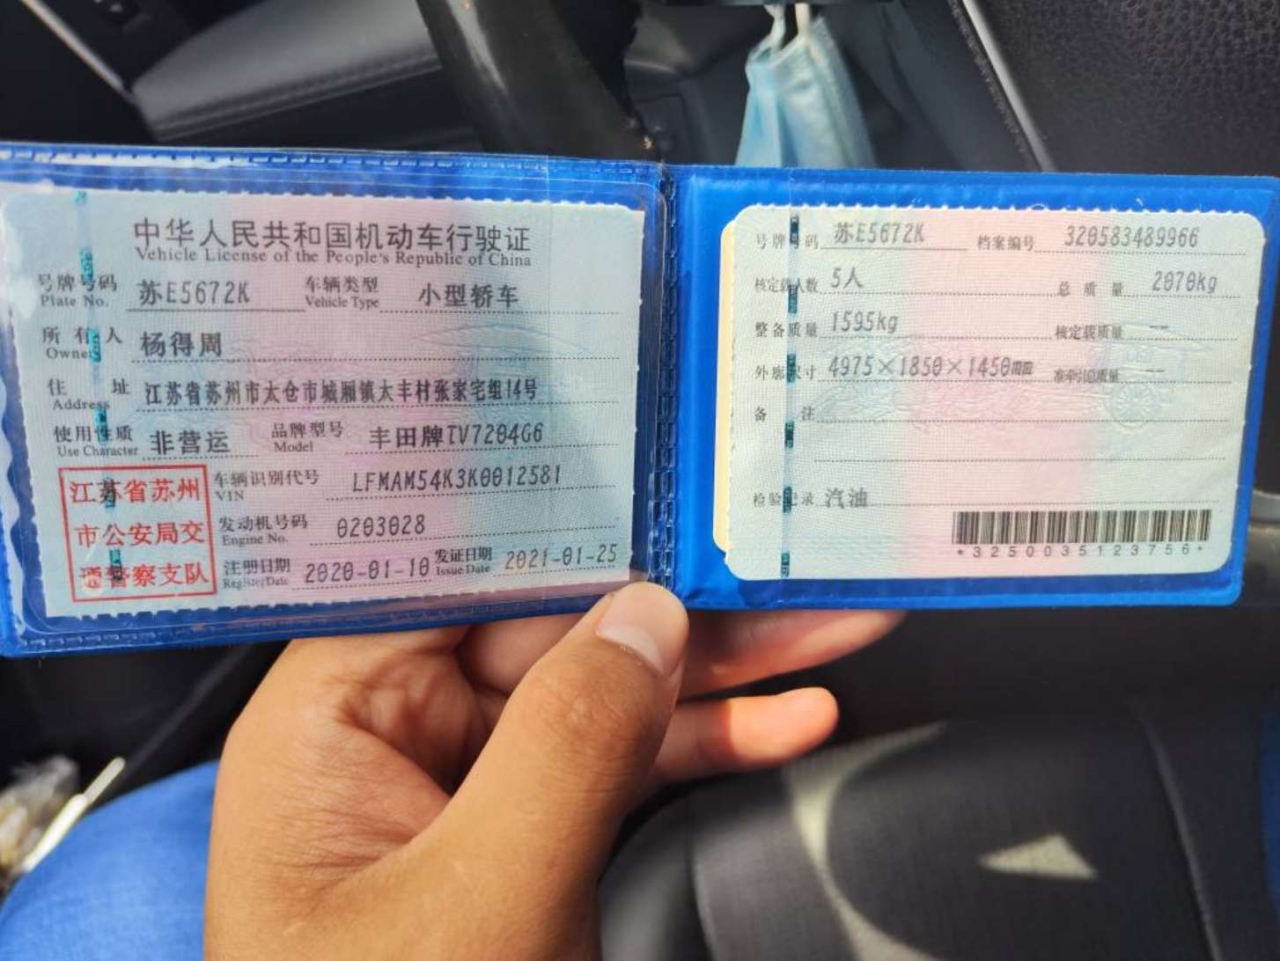 中华人民共和国机动车行驶证
Vehicle License of the People's Republic of China
号牌号码 苏E5672K 车辆类型 小型轿车
Plate No. Vehicle Type
所有人 杨得周
Owner
住址 江苏省苏州市太仓市城厢镇太丰村张家宅组14号
Address
使用性质 非营运 品牌型号 丰田牌TV7204G6
Use Character Model
车辆识别代号 LFMAM54K3K0012581
VIN
发动机号码 0203028
Engine No.
注册日期 2020-01-10 发证日期 2021-01-25
Register Date Issue Date
江苏省苏州
市公安局交
通警察支队
号牌号码 苏E5672K 档案编号 320583489966
核定载人数 5人 总质量 2070kg
整备质量 1595kg 核定载质量 --
外廓尺寸 4975×1850×1450mm 准牵引总质量 --
备注
检验记录 汽油
*3250035123756*